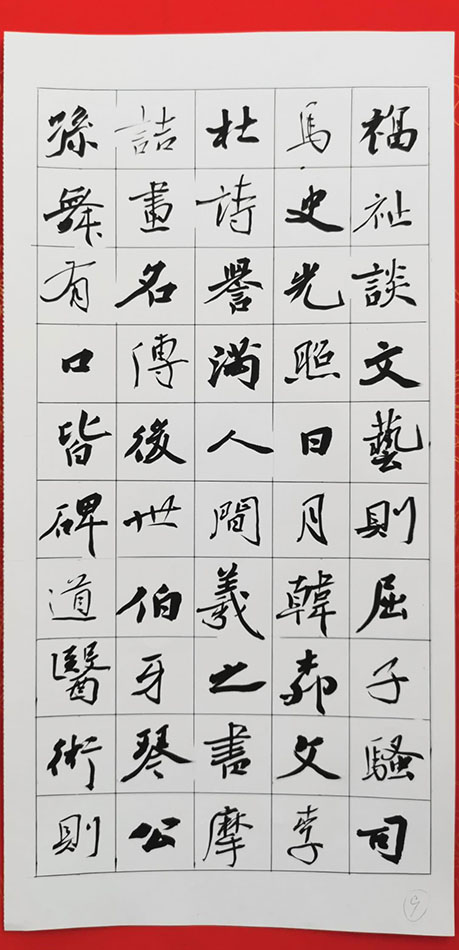 福祉談文藝則屈子騷司
馬史光照日月韓柳文李
杜詩譽滿人間羲之書摩
詰畫名傳後世伯牙琴公
孫舞有口皆碑道醫術則
9